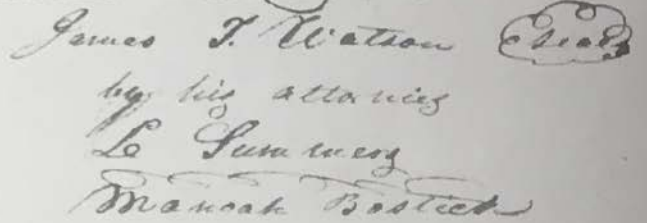 James T. Watson Seal
by his attornies
L Summers
Manoah Bostick